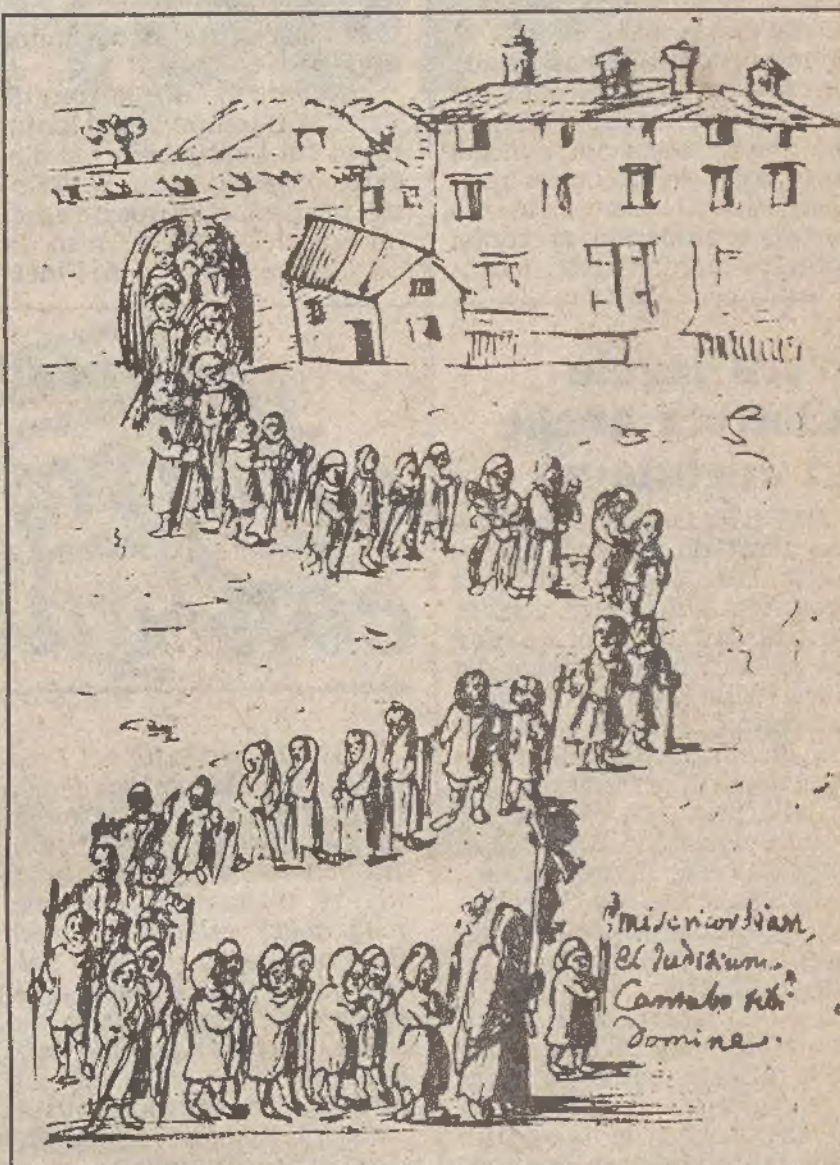 misericordiam,
et Iuditium.
Cantabo tibi
Domine.